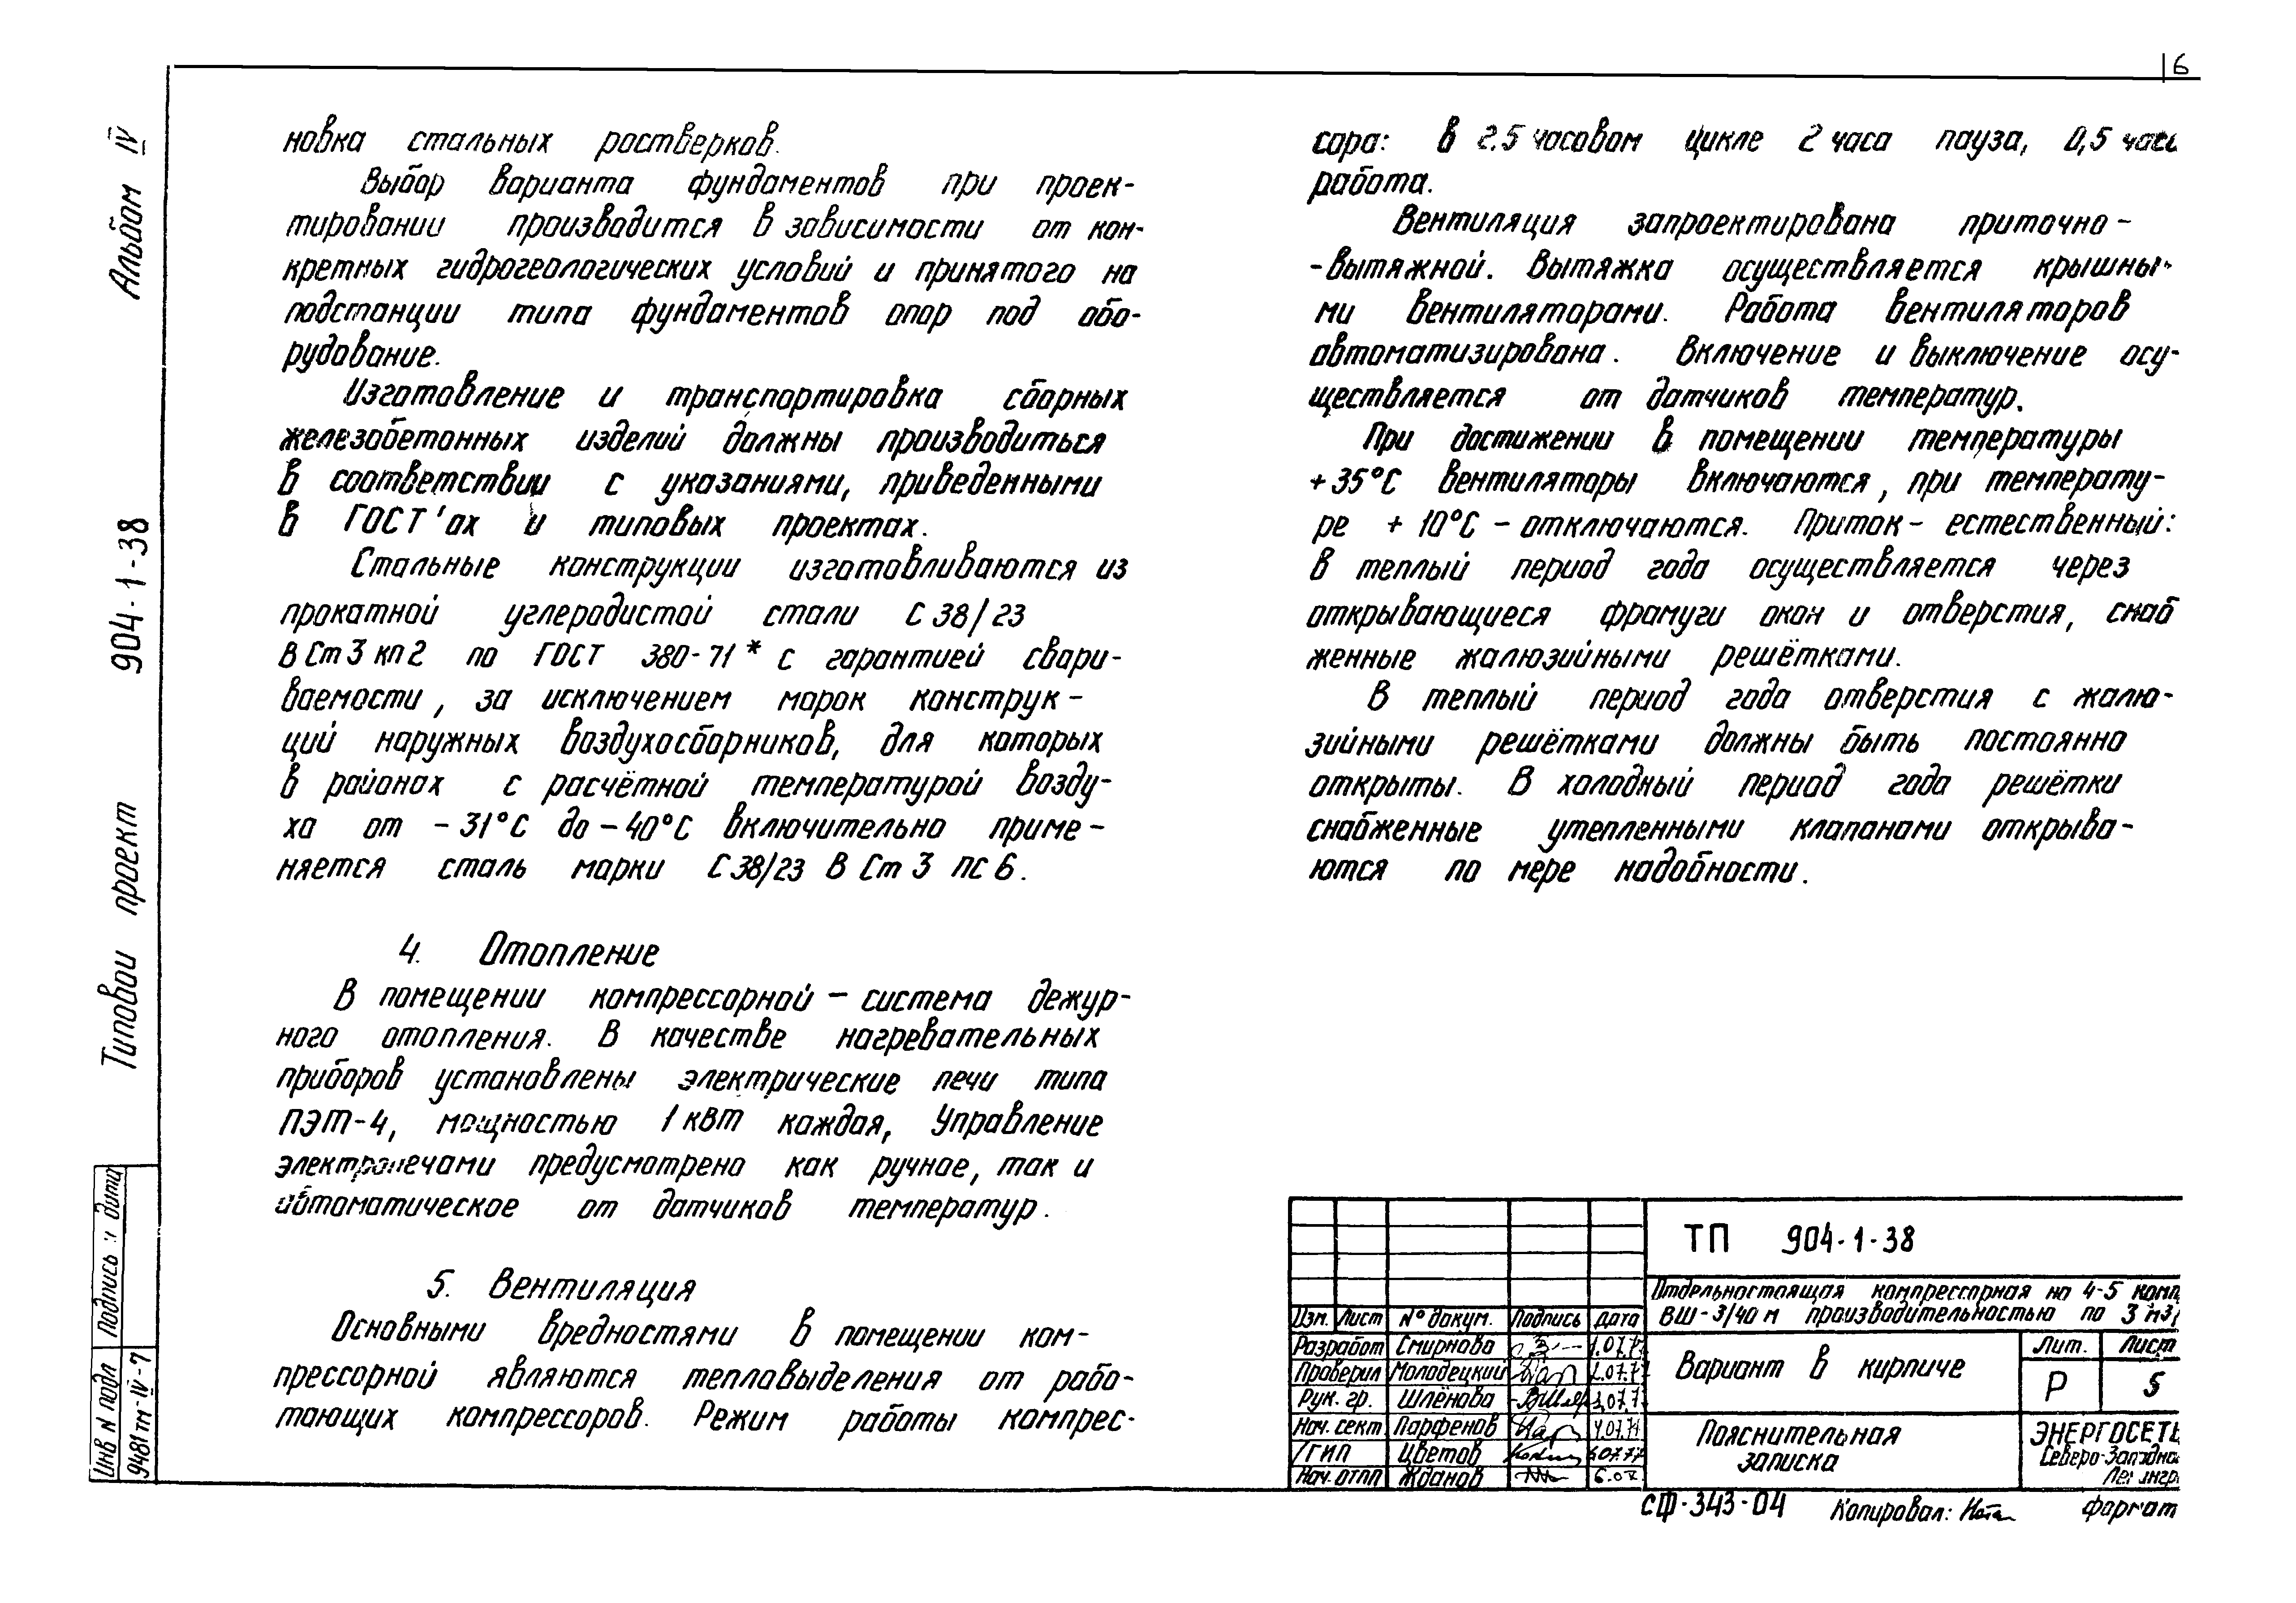 6
Альбом IV
904-1-38
Типовой проект
Подпись и дата
Инв N подл
9481тм-IV-7
новка стальных ростверков.
Выбор варианта фундаментов при проек-
тировании производится в зависимости от кон-
кретных гидрогеологических условий и принятого на
подстанции типа фундаментов опор под обо-
рудование.
Изготовление и транспортировка сборных
железобетонных изделий должны производиться
в соответствии с указаниями, приведенными
в ГОСТ'ах и типовых проектах.
Стальные конструкции изготавливаются из
прокатной углеродистой стали С 38/23
ВСт3кп2 по ГОСТ 380-71* с гарантией свари-
ваемости, за исключением марок конструк-
ций наружных воздухосборников, для которых
в районах с расчётной температурой возду-
ха от -31°С до -40°С включительно приме-
няется сталь марки С38/23 ВСт3пс6.
4. Отопление
В помещении компрессорной - система дежур-
ного отопления. В качестве нагревательных
приборов установлены электрические печи типа
ПЭТ-4, мощностью 1 квт каждая, Управление
электропечами предусмотрено как ручное, так и
автоматическое от датчиков температур.
5. Вентиляция
Основными вредностями в помещении ком-
прессорной являются тепловыделения от рабо-
тающих компрессоров. Режим работы компрес-
сора: в 2.5 часовом цикле 2 часа пауза, 0,5 часа
работа.
Вентиляция запроектирована приточно-
-вытяжной. Вытяжка осуществляется крышны-
ми вентиляторами. Работа вентиляторов
автоматизирована. Включение и выключение осу-
ществляется от датчиков температур.
При достижении в помещении температуры
+35°С вентиляторы включаются, при температу-
ре +10°С - отключаются. Приток - естественный:
в теплый период года осуществляется через
открывающиеся фрамуги окон и отверстия, снаб
женные жалюзийными решётками.
В теплый период года отверстия с жалю-
зийными решётками должны быть постоянно
открыты. В холодный период года решётки
снабженные утепленными клапанами открыва-
ются по мере надобности.
ТП 904-1-38
Отдельностоящая компрессорная на 4-5 комп
ВШ-3/40м производительностью по 3 м3/
Изм. Лист N° докум. Подпись Дата
Разработ Смирнова
Проверил Молодецкий
Рук. гр. Шлёнова
Нач. сект Парфенов
ГИП Цветов
Нач. отп Жданов
Вариант в кирпиче
Лит. Лист
Р 5
Пояснительная
записка
ЭНЕРГОСЕТЬ
Северо-Западно
Ленингр
СФ-343-04 Копировал: Формат